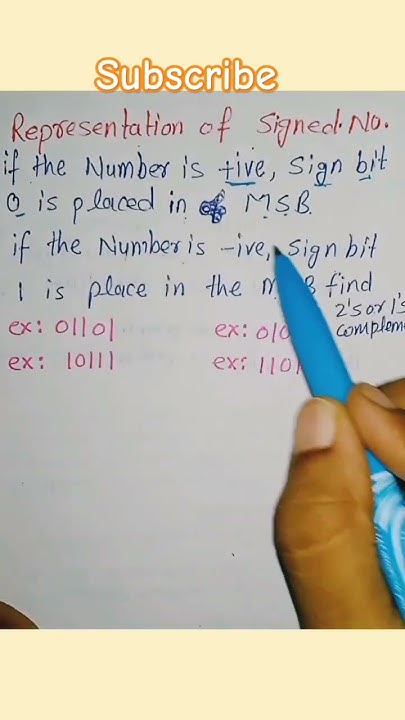 Subscribe
Representation of Signed.No.
if the Number is +ive, Sign bit
0 is placed in MSB.
if the Number is -ive, Sign bit
1 is place in the find
2's or 1's
ex: 01101 ex:
ex: 10111 ex: